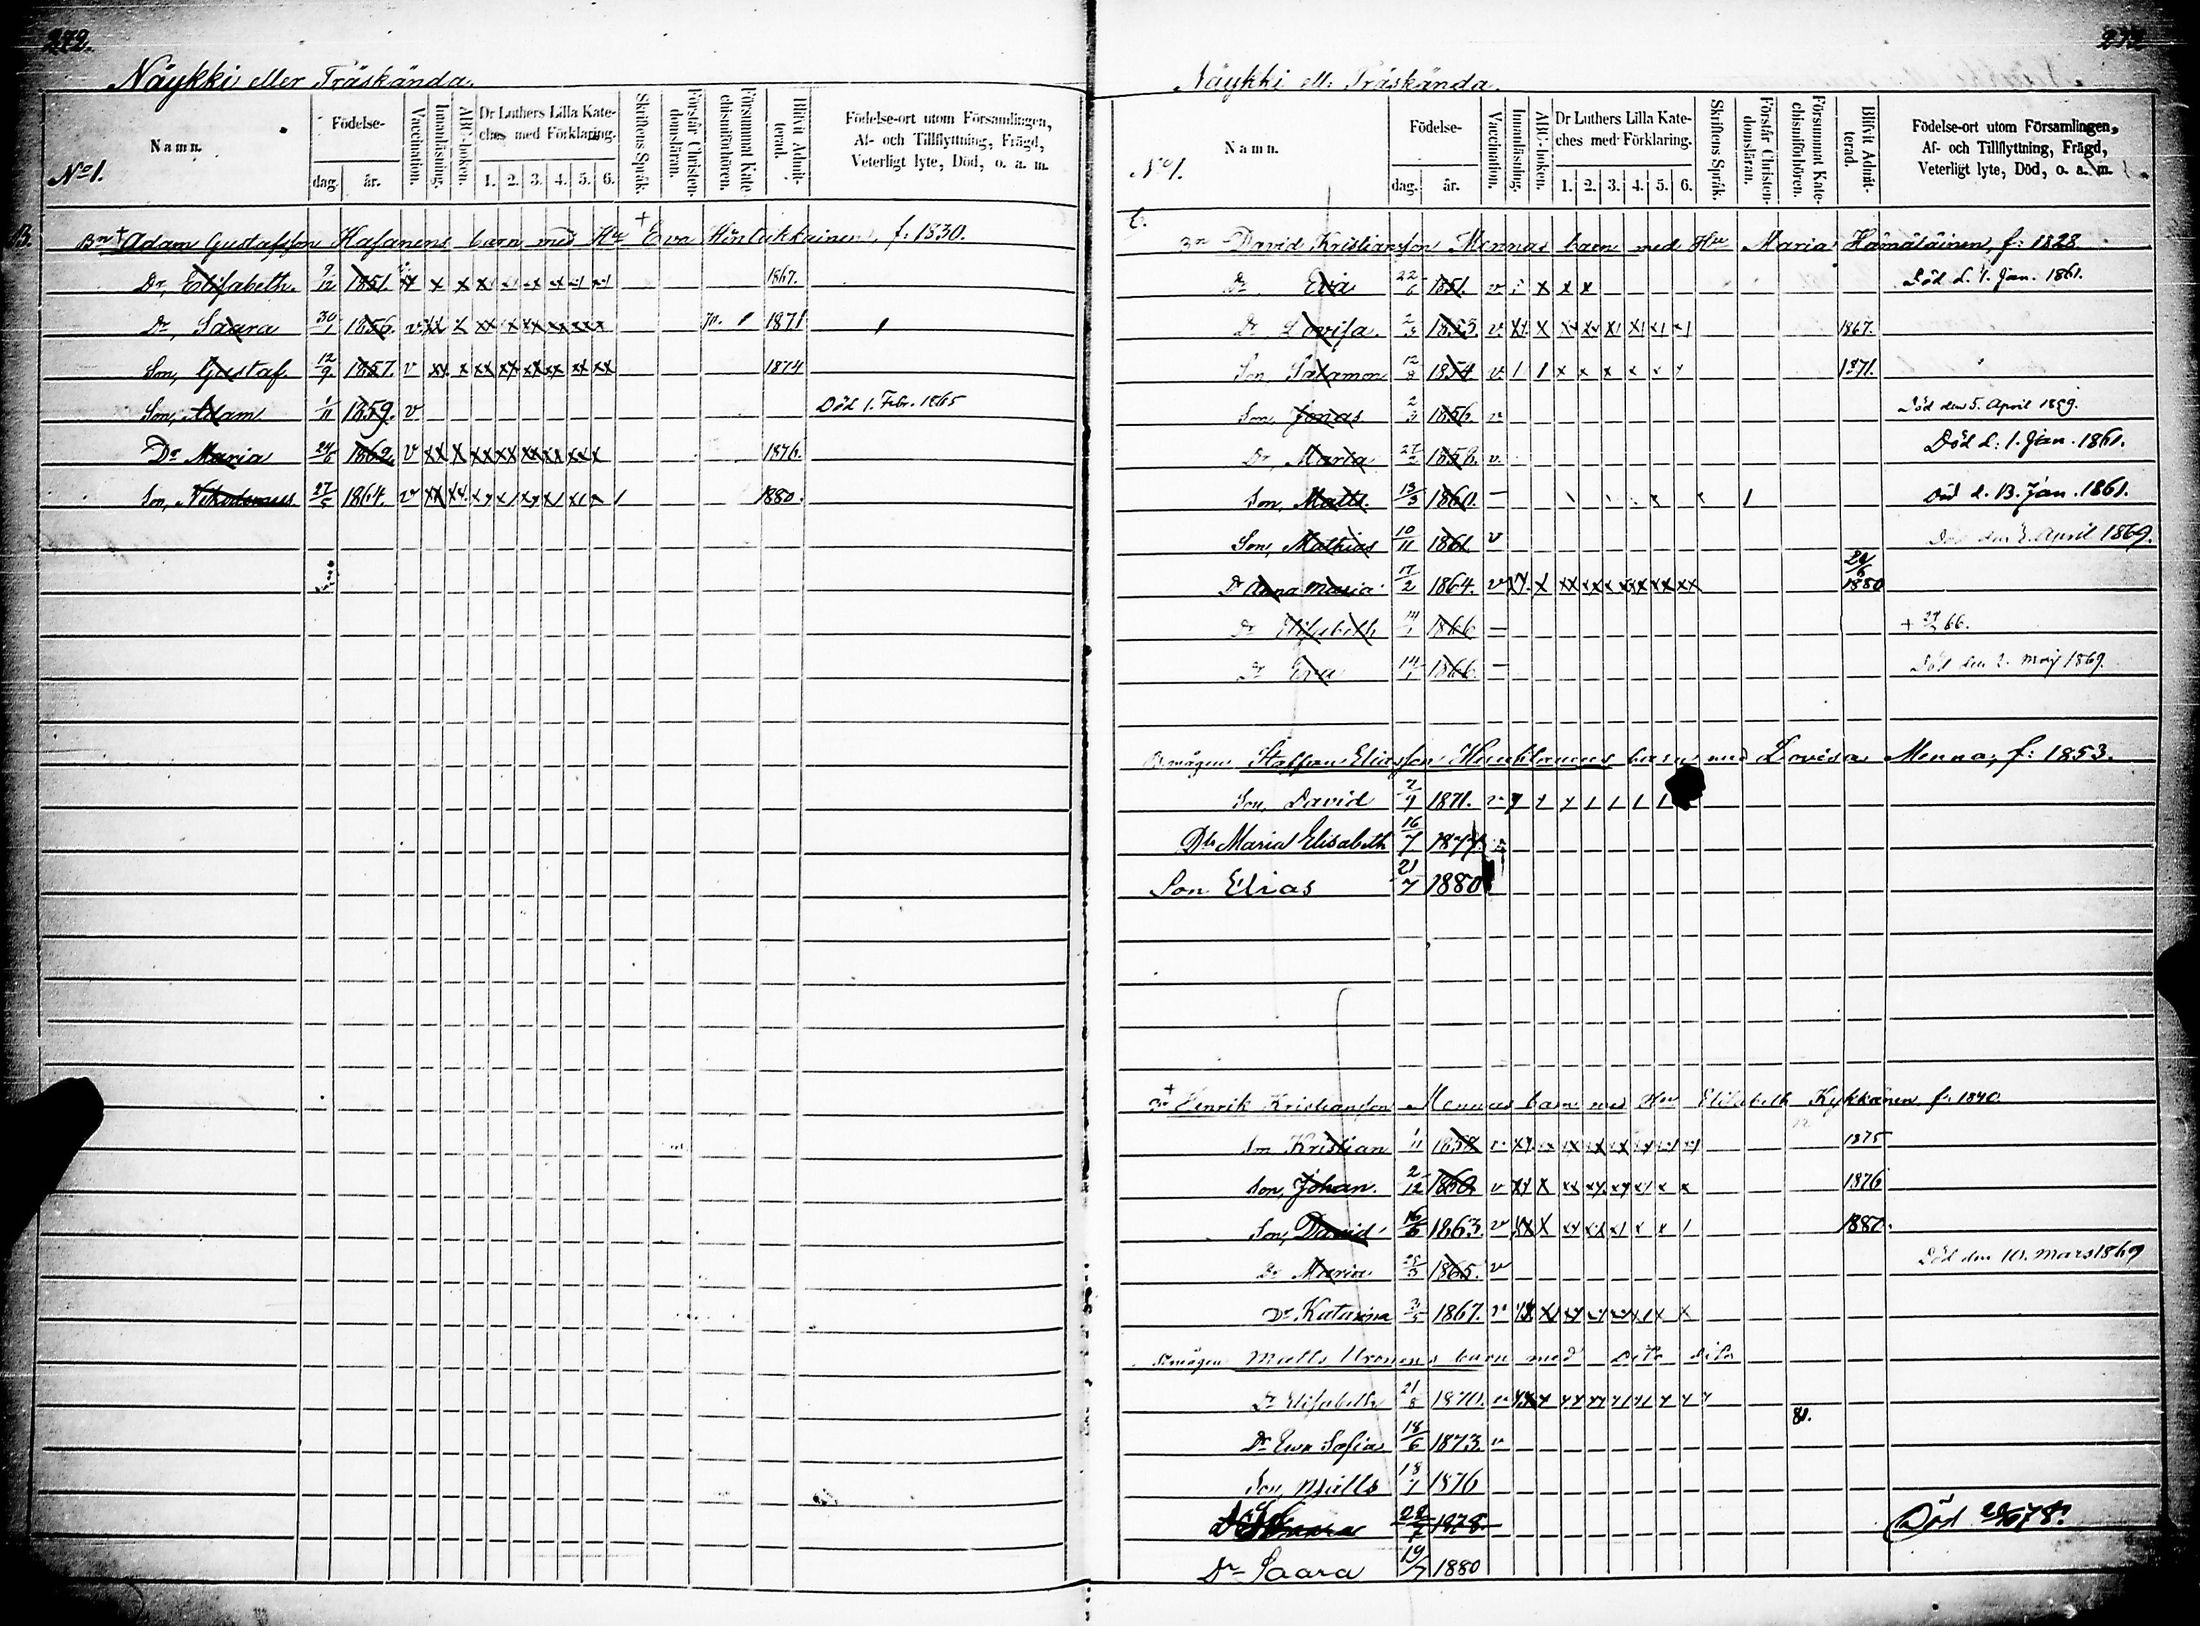 272.
Näykki eller Träskända.
No 1.
Namn.
Födelse-
dag. år.
Vaccination.
Innanläsning.
ABC-boken.
Dr Luthers Lilla Kate-
ches med Förklaring.
1. 2. 3. 4. 5. 6.
Skriftens Språk.
Förstår Christen-
domsläran.
Försummat Kate-
chismiförhören.
Blifvit Admit-
terad.
Födelse-ort utom Församlingen,
Af- och Tillflyttning, Frägd,
Veterligt lyte, Död, o. a. m.
B.
Bn + Adam Gustafsson Hafanens barn med Hu + Eva f. 1830.
Dr, Elisabeth. 9/12 1851. 1867.
Dr, Saara 30/1 1856. v. 1871
Son, Gustaf 12/9 1857. v 1874
Son, Adam 1/11 1859. v Död 1. Febr. 1865
Dr Maria 24/6 1862. v 1876.
Son, Nikodemus 27/5 1864. v 1880.
272
Näykki ell. Träskända.
No 1.
Namn.
Födelse-
dag. år.
Vaccination.
Innanläsning.
ABC-boken.
Dr Luthers Lilla Kate-
ches med Förklaring.
1. 2. 3. 4. 5. 6.
Skriftens Språk.
Förstår Christen-
domsläran.
Försummat Kate-
chismiförhören.
Blifvit Admit-
terad.
Födelse-ort utom Församlingen,
Af- och Tillflyttning, Frägd,
Veterligt lyte, Död, o. a. m.
C.
Bn David Kristiansson Mennas barn med Hu Maria Hämäläinen, f: 1828
Dr Eva 22/6 1851. v Död d. 1. Jan. 1861.
Dr, Lovisa. 2/3 1853. v. 1867.
Son, Salamon 12/8 1854 v. 1871.
Son, Jonas 2/3 1856 v Död den 5. April 1859.
Dr, Maria 27/2 1858. v. Död d: 1. Jan. 1861.
Son, Matts. 13/3 1860. Död d. 13. Jan. 1861.
Son, Mathias 10/11 1861 v Död den April 1869.
Dr Anna Maria 17/2 1864. v 1880
Dr Elisabeth 14/1 1866 + 66.
Dr Eva 14/1 1866 Död den 2. Maj 1869.
Staffan Eliasson barn med Lovisa Menna, f: 1853.
Son, David 2/9 1871. v
Dtr Maria Elisabeth 16/7 1877.
Son Elias 21/7 1880
+ Henrik Kristiansson Mennas barn med Hu Elisabeth Kykkänen f. 1840
Son Kristian 1/11 1858 v 1875
Son, Johan. 2/12 1860 v 1876
Son, David 16/6 1863. v 1880.
Dr Maria 25/3 1865. v Död den 10. Mars 1869
Dr Katarina 3/5 1867. v
Matts Uronens barn med Dito Dito
Dr Elisabeth 21/8 1870. v
81.
Dr Eva Sofia 18/6 1873. v
Son, Matts 18/7 1876
22/7 1878. Död 78.
Dr Saara 19/7 1880